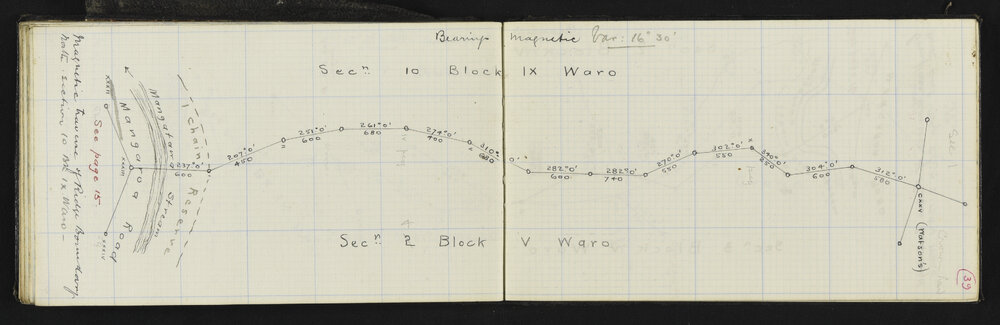 Bearings magnetic Var: 16° 30'
Secⁿ 10 Block IX Waro
Magnetic Traverse of Ridge Boundary
Secⁿ 2 Block V Waro
See page 15.
Mangaroa Road
Stream
1 chain Reserve
XXXIII
XXXIV
237°0'
600
207°0'
450
251°0'
600
261°0'
680
274°0'
700
310°0'
282°0'
600
278°0'
740
270°0'
550
302°0'
550
304°0'
600
312°0'
580
CXXV (Watson's)
39